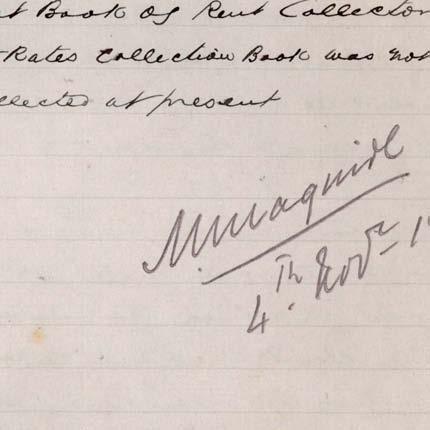 t Book of Rent Collector
Rates Collection Book was not
llected at present
M Maguire
4th Novr 1